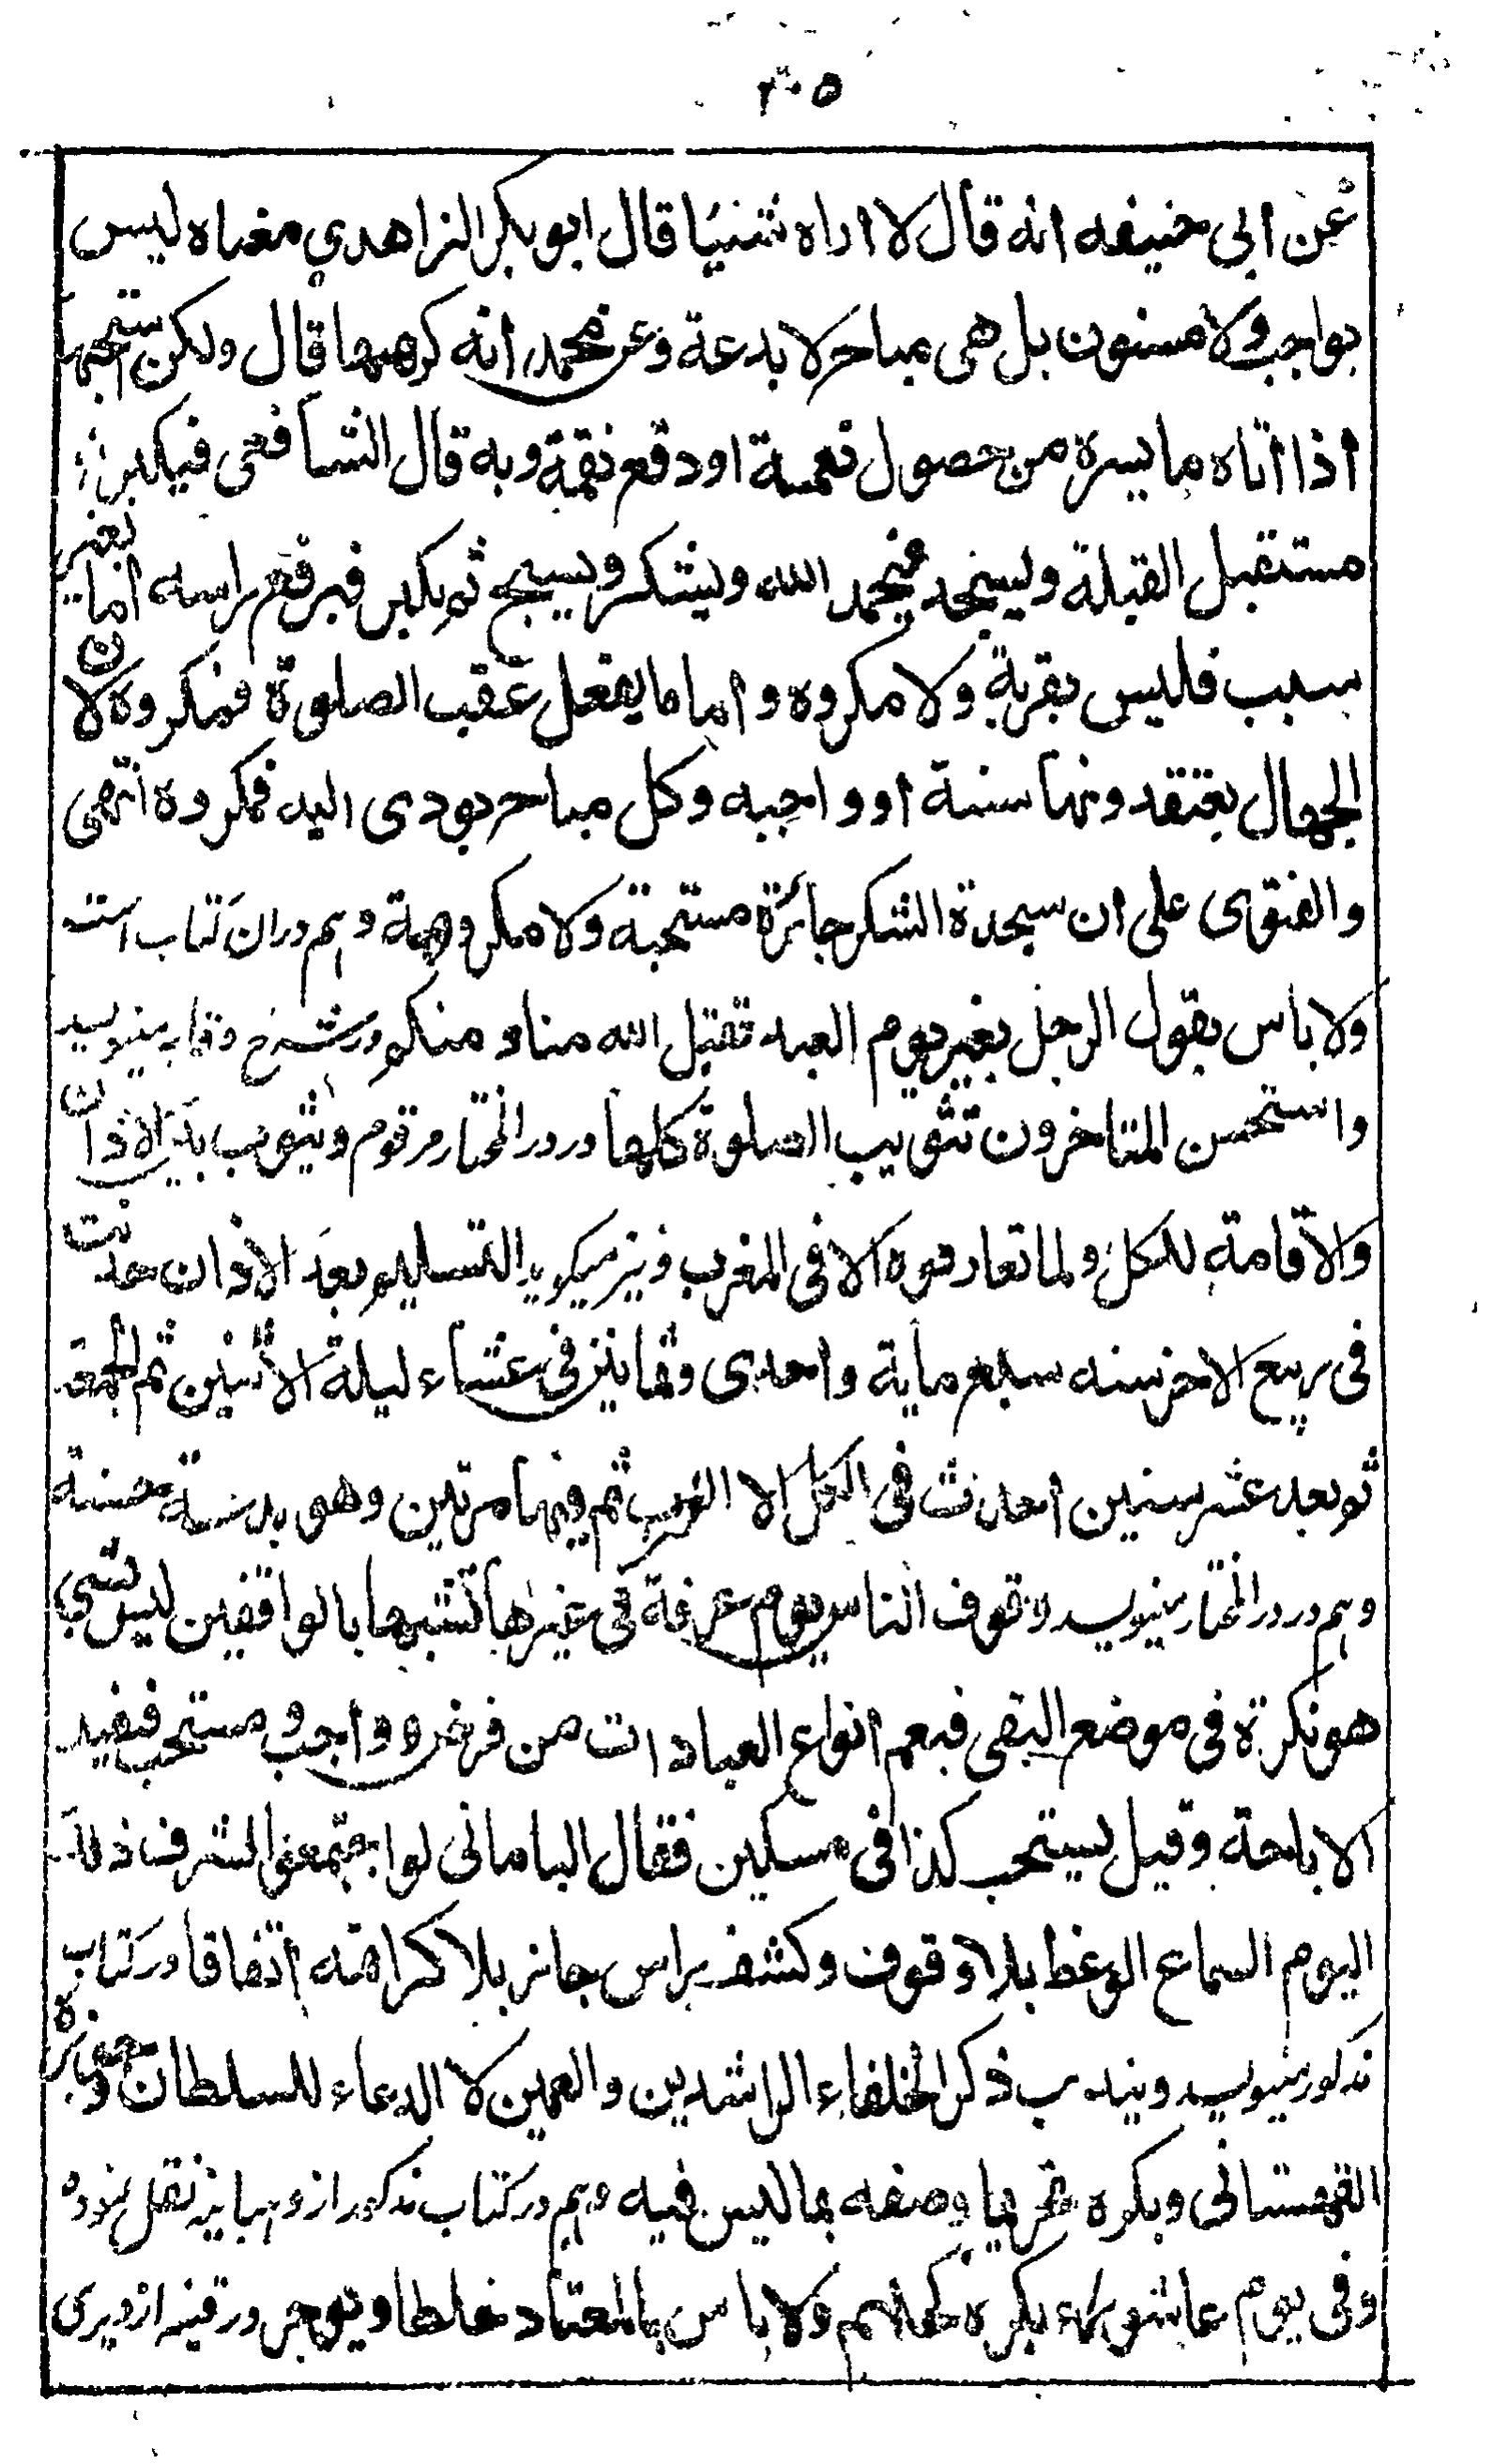 ٣٠٥
عن ابى حنيفه انه قال لا اراه شئيا قال ابو بكر الزاهدي معناه ليس
بواجب ولا مسنون بل هى مباح لا بدعة وعن محمد انه كرهها قال ولكن يستحبها
اذا اتاه ما يسره من حصول نعمة او دفع نقمة وبه قال الشافعى فيكبر
مستقبل القبلة ويسجد فيحمد الله ويشكر ويسبح ثم يكبر فيرفع راسه اما بغير
سبب فليس بقربة ولا مكروه واما ما يفعل عقب الصلوة فمكروه لان
الجهال يعتقدونها سنة او واجبه وكل مباح يودى اليه فمكروه انتهى
والفتوى على ان سجدة الشكر جائزة مستحبة ولا مكروهة وہم دران کتاب است
ولا باس بقول الرجل بغير يوم العيد تقبل الله منا و منكم ودر شرح وقایہ مینویسد
واستحسن المتاخرون تثويب الصلوة كلها ودر در المختار مرقوم ويثوب بين الاذان
والاقامة للكل ولما تعارفوه الا فى المغرب ونیز میگوید التسليم بعد الاذان حدثت
فى ربيع الاخر سنه سبع ماية واحدى وثمانين فى عشاء ليلة الاثنين ثم الجمعة
ثم بعد عشر سنين احدث فى الكل الا المغرب ثم فيها مرتين وهو بدعة حسنة
وہم در در المختار مینویسد وقوف الناس يوم عرفة فى غيرها تشبها بالواقفين ليس بشي
هو نكرة فى موضع النفى فيعم انواع العبادات من فرض و واجب و مستحب فيفيد
الاباحة وقيل يستحب كذا فى مسكين فقال الباقانى لو اجتمعوا لشرف ذلك
اليوم السماع الوعظ بلا وقوف وكشف براس جائز بلا كراهة اتفاقا ودر کتاب
مذکور مینویسد ويندب ذكر الخلفاء الراشدين والعمين لا الدعاء للسلطان وجوزه
القهستانى ويكره تحريما وصفه بما ليس فيه وہم در کتاب مذکور از وہبانیہ نقل نموده
وفى يوم عاشوراء يكره كحلهم ولا باس بالمعتاد خلطا ويوجر ودر قنیہ از وبری